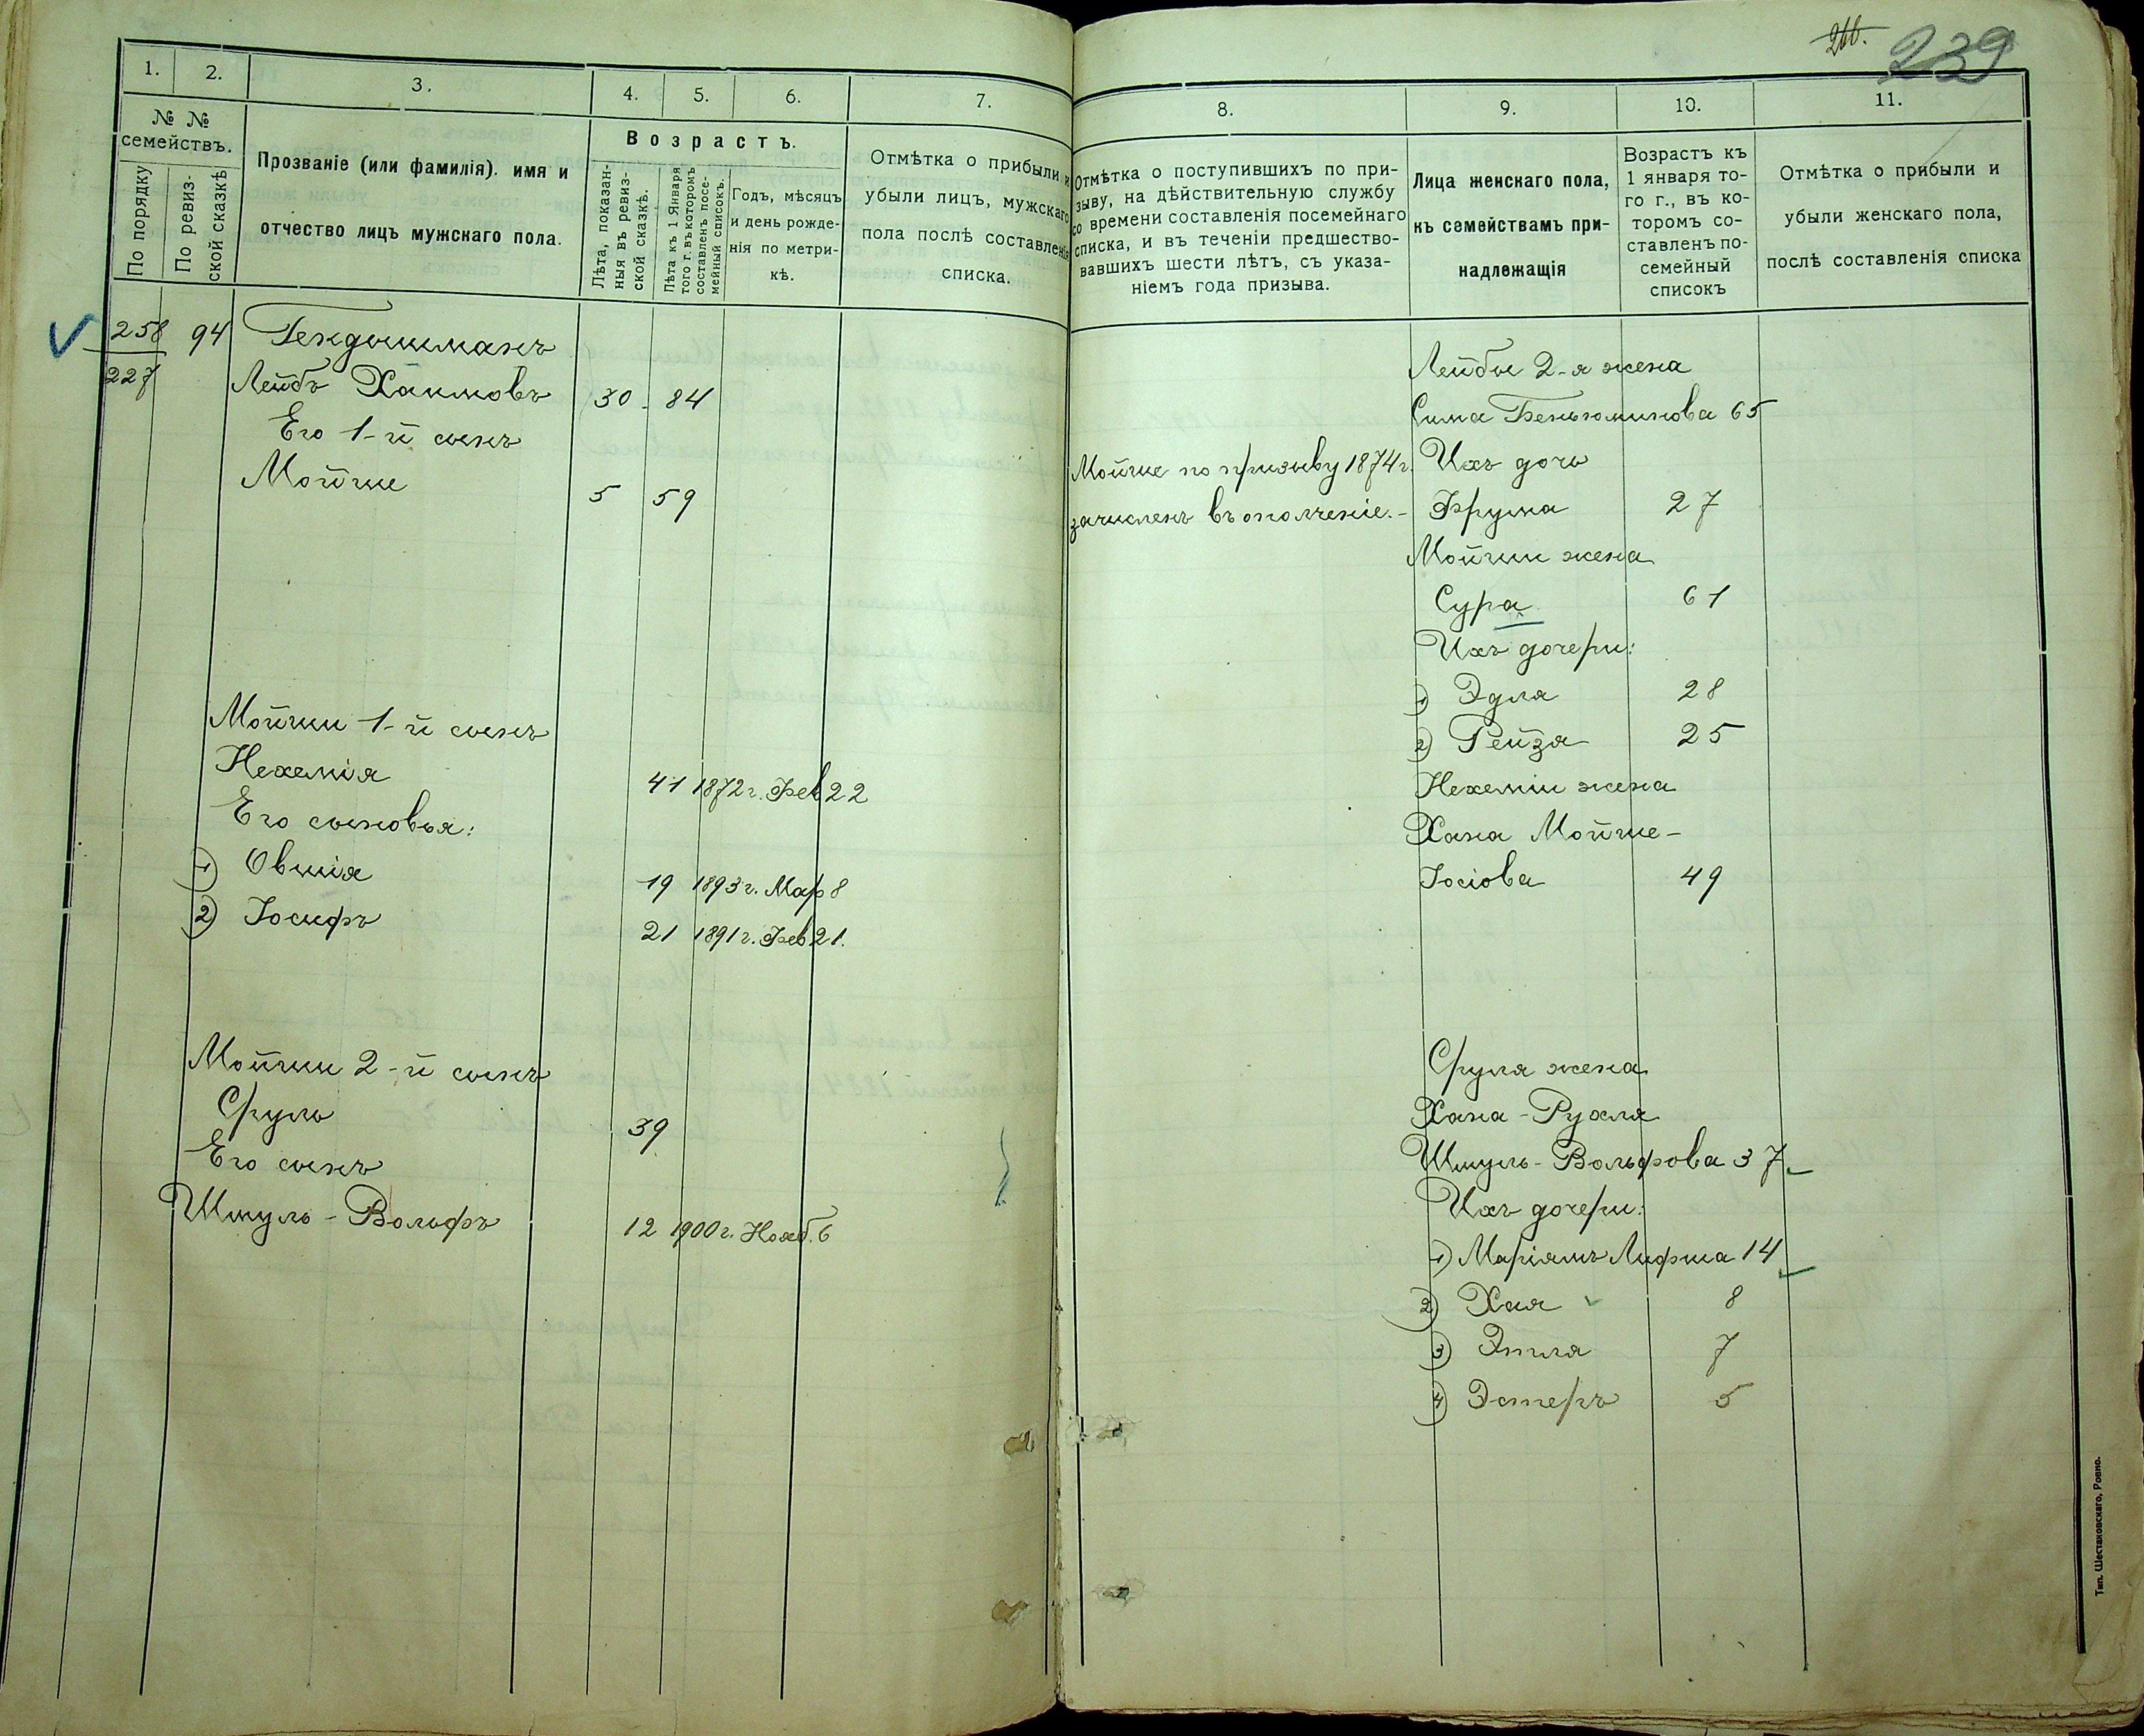 266.
239
1.
2.
3.
4.
5.
6.
7.
№ №
семействъ.
По порядку
По ревиз-
ской сказкѣ
Прозваніе (или фамилія). имя и
отчество лицъ мужскаго пола.
Возрастъ.
Лѣта, показан-
ныя въ ревиз-
ской сказкѣ.
Лѣта къ 1 Января
того г. въ которомъ
составленъ посе-
мейный списокъ.
Годъ, мѣсяцъ
и день рожде-
нія по метри-
кѣ.
Отмѣтка о прибыли и
убыли лицъ, мужскаго
пола послѣ составленія
списка.
258 94 Гендышманъ
227
Лейбъ Хаимовъ 30 - 84
Его 1-й сынъ
Мойше 5 59
Мойши 1-й сынъ
Нехемія 41 1872 г. Фев 22
Его сыновья:
1) Овшія 19 1893 г. Мар 8
2) Іосифъ 21 1891 г. Фев 21.
Мойши 2-й сынъ
Сруль 39
Его сынъ
Шмуль-Вольфъ 12 1900 г. Нояб. 6
8.
9.
10.
11.
Отмѣтка о поступившихъ по при-
зыву, на дѣйствительную службу
со времени составленія посемейнаго
списка, и въ теченіи предшество-
вавшихъ шести лѣтъ, съ указа-
ніемъ года призыва.
Лица женскаго пола,
къ семействамъ при-
надлежащія
Возрастъ къ
1 января то-
го г., въ ко-
торомъ со-
ставленъ по-
семейный
списокъ
Отмѣтка о прибыли и
убыли женскаго пола,
послѣ составленія списка
Лейбы 2-я жена
Сима Беньюминова 65
Мойше по призыву 1874 г. Ихъ дочь
зачисленъ въ ополченіе.- Фрума 27
Мойши жена
Сура 61
Ихъ дочери:
1) Эдля 28
2) Рейзя 25
Нехеміи жена
Хана Мойше-
Іосіова 49
Сруля жена
Хана-Рухля
Шмуль-Вольфова 37
Ихъ дочери:
1) Маріямъ Лифша 14
2) Хая 8
3) Этля 7
4) Эстеръ 5
Тип. Шестаковскаго, Ровно.